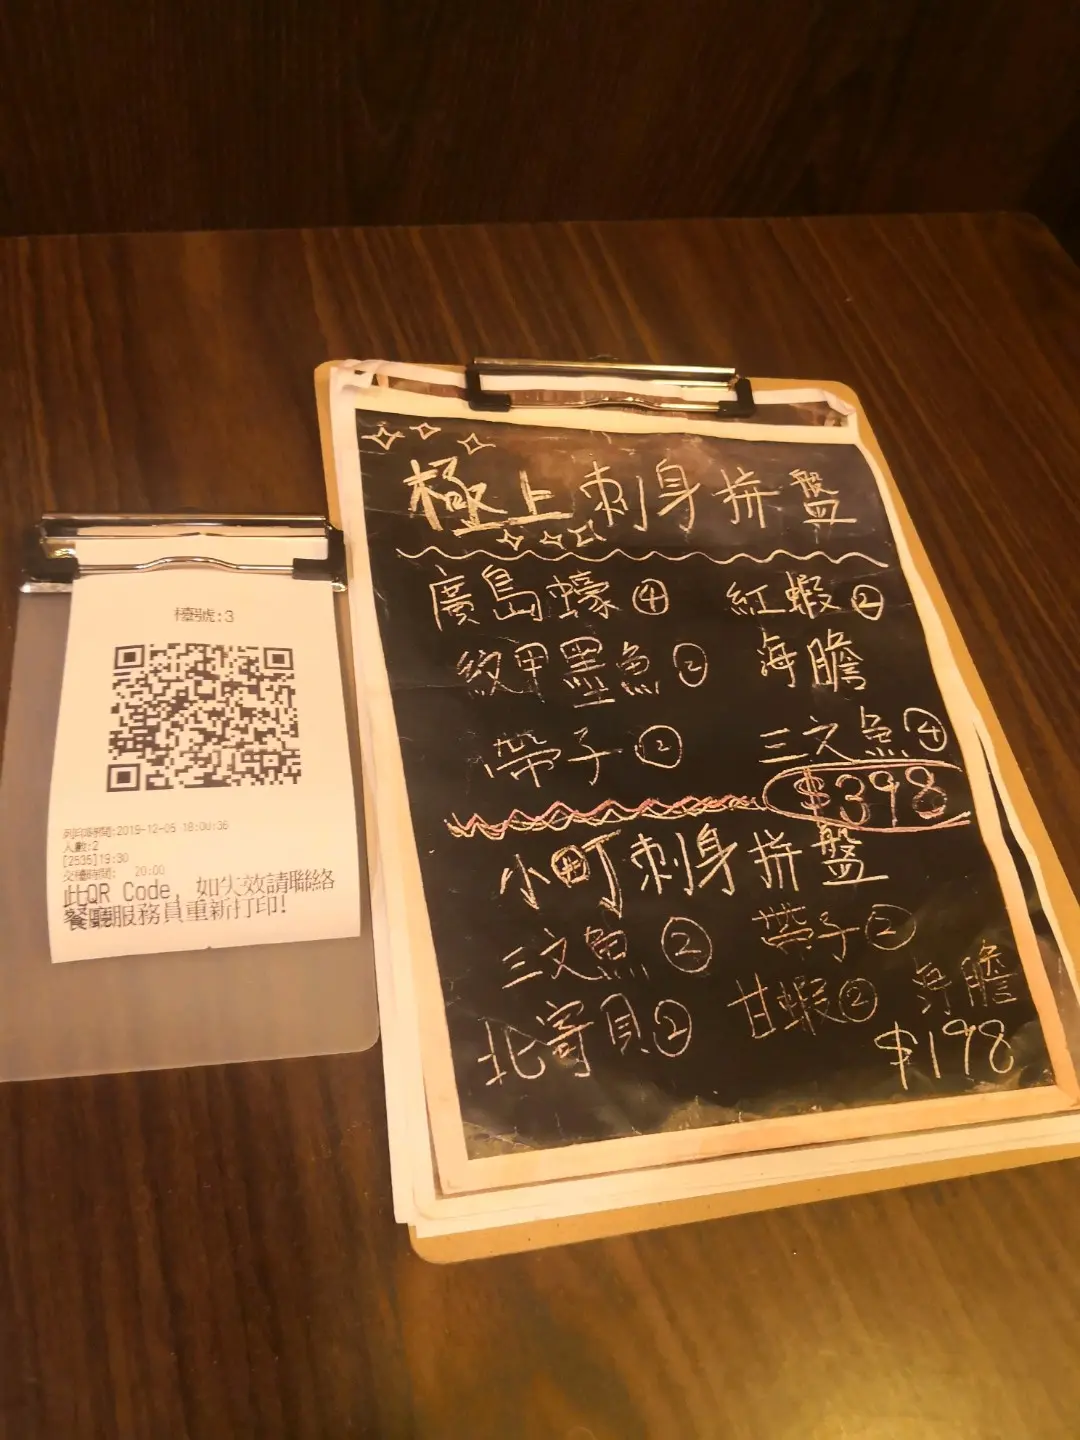 檯號:3
列印時間:2019-12-05 18:00:36
人數:2
[2535]19:30
交檯時間: 20:00
此QR Code, 如失效請聯絡
餐廳服務員重新打印!
極上刺身拼盤
廣島蠔④ 紅蝦②
紋甲墨魚② 海膽
帶子② 三文魚④
$398
小町刺身拼盤
三文魚② 帶子②
北寄貝② 甘蝦② 海膽
$198